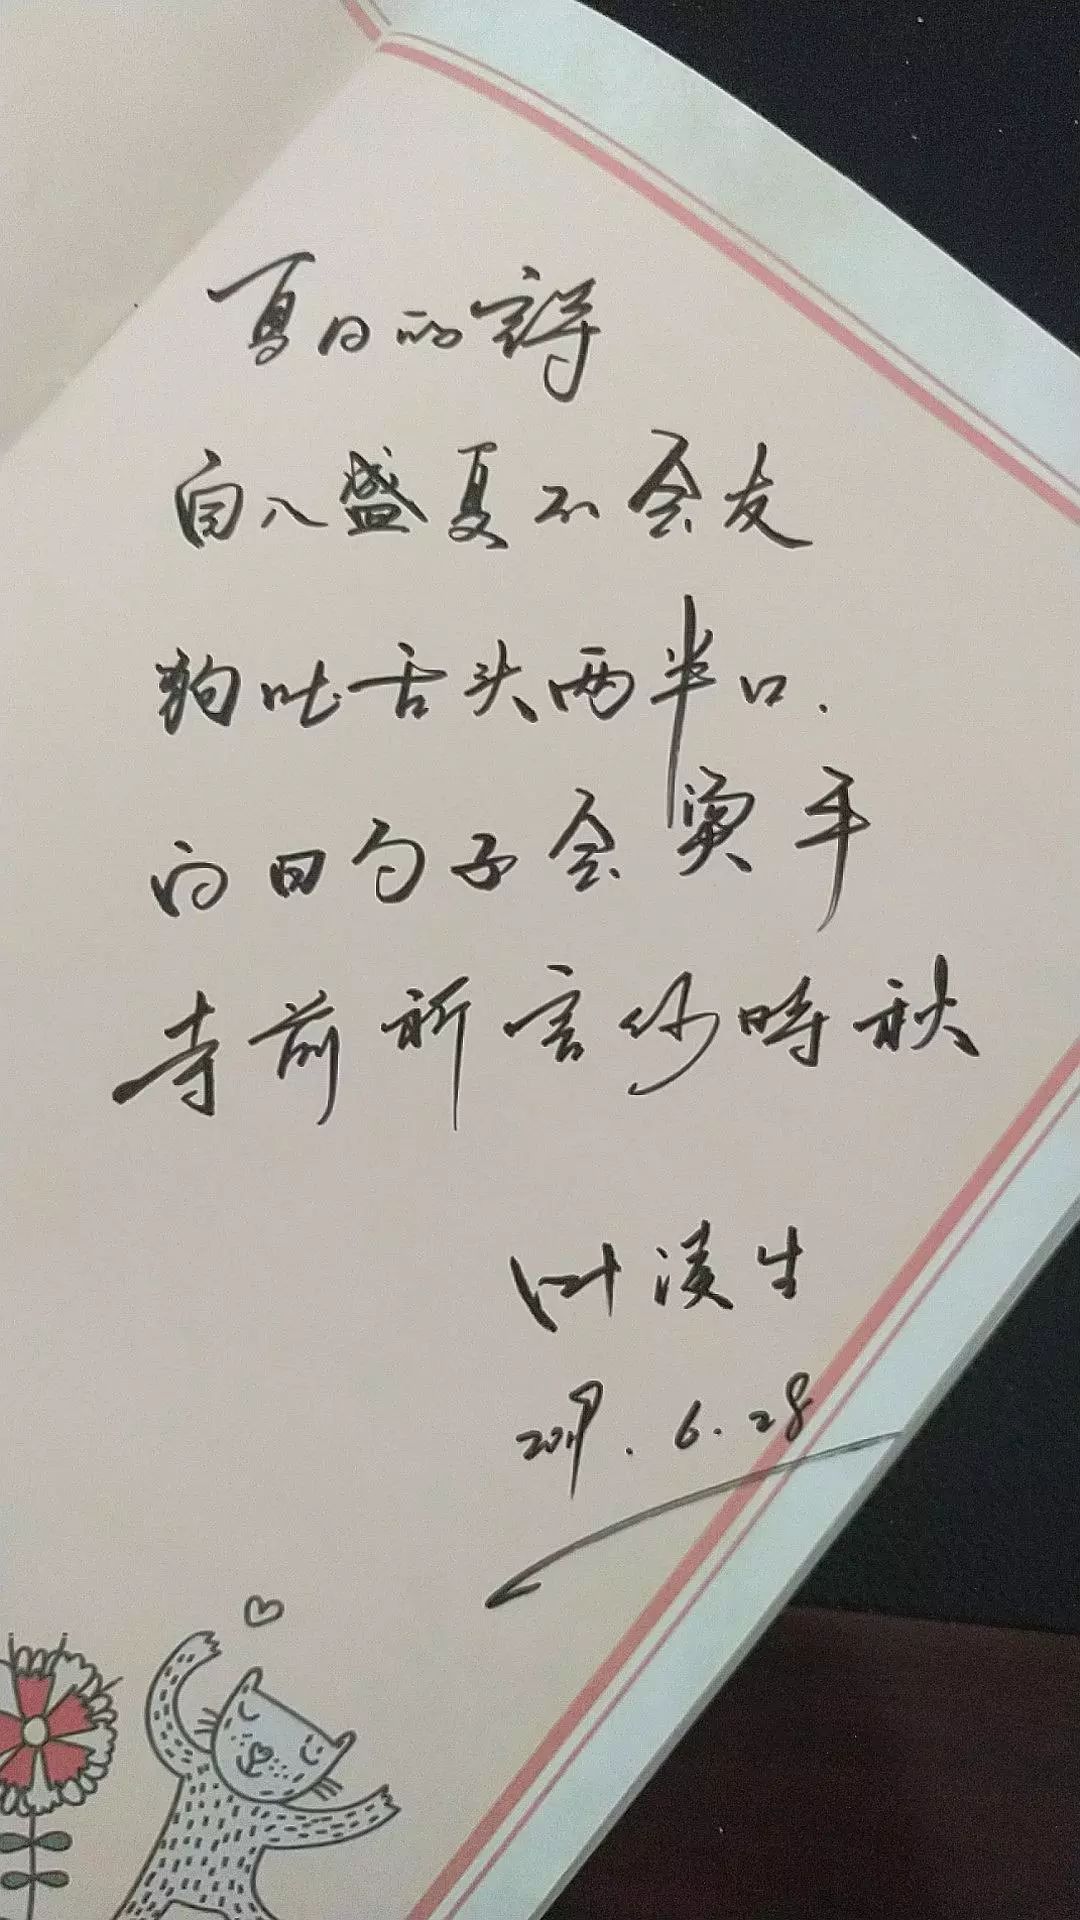 夏日的诗
自入盛夏不会友
狗吐舌头两半口.
向日勾子会烫手
寺前祈言纱时秋
叶淩生
2019.6.28